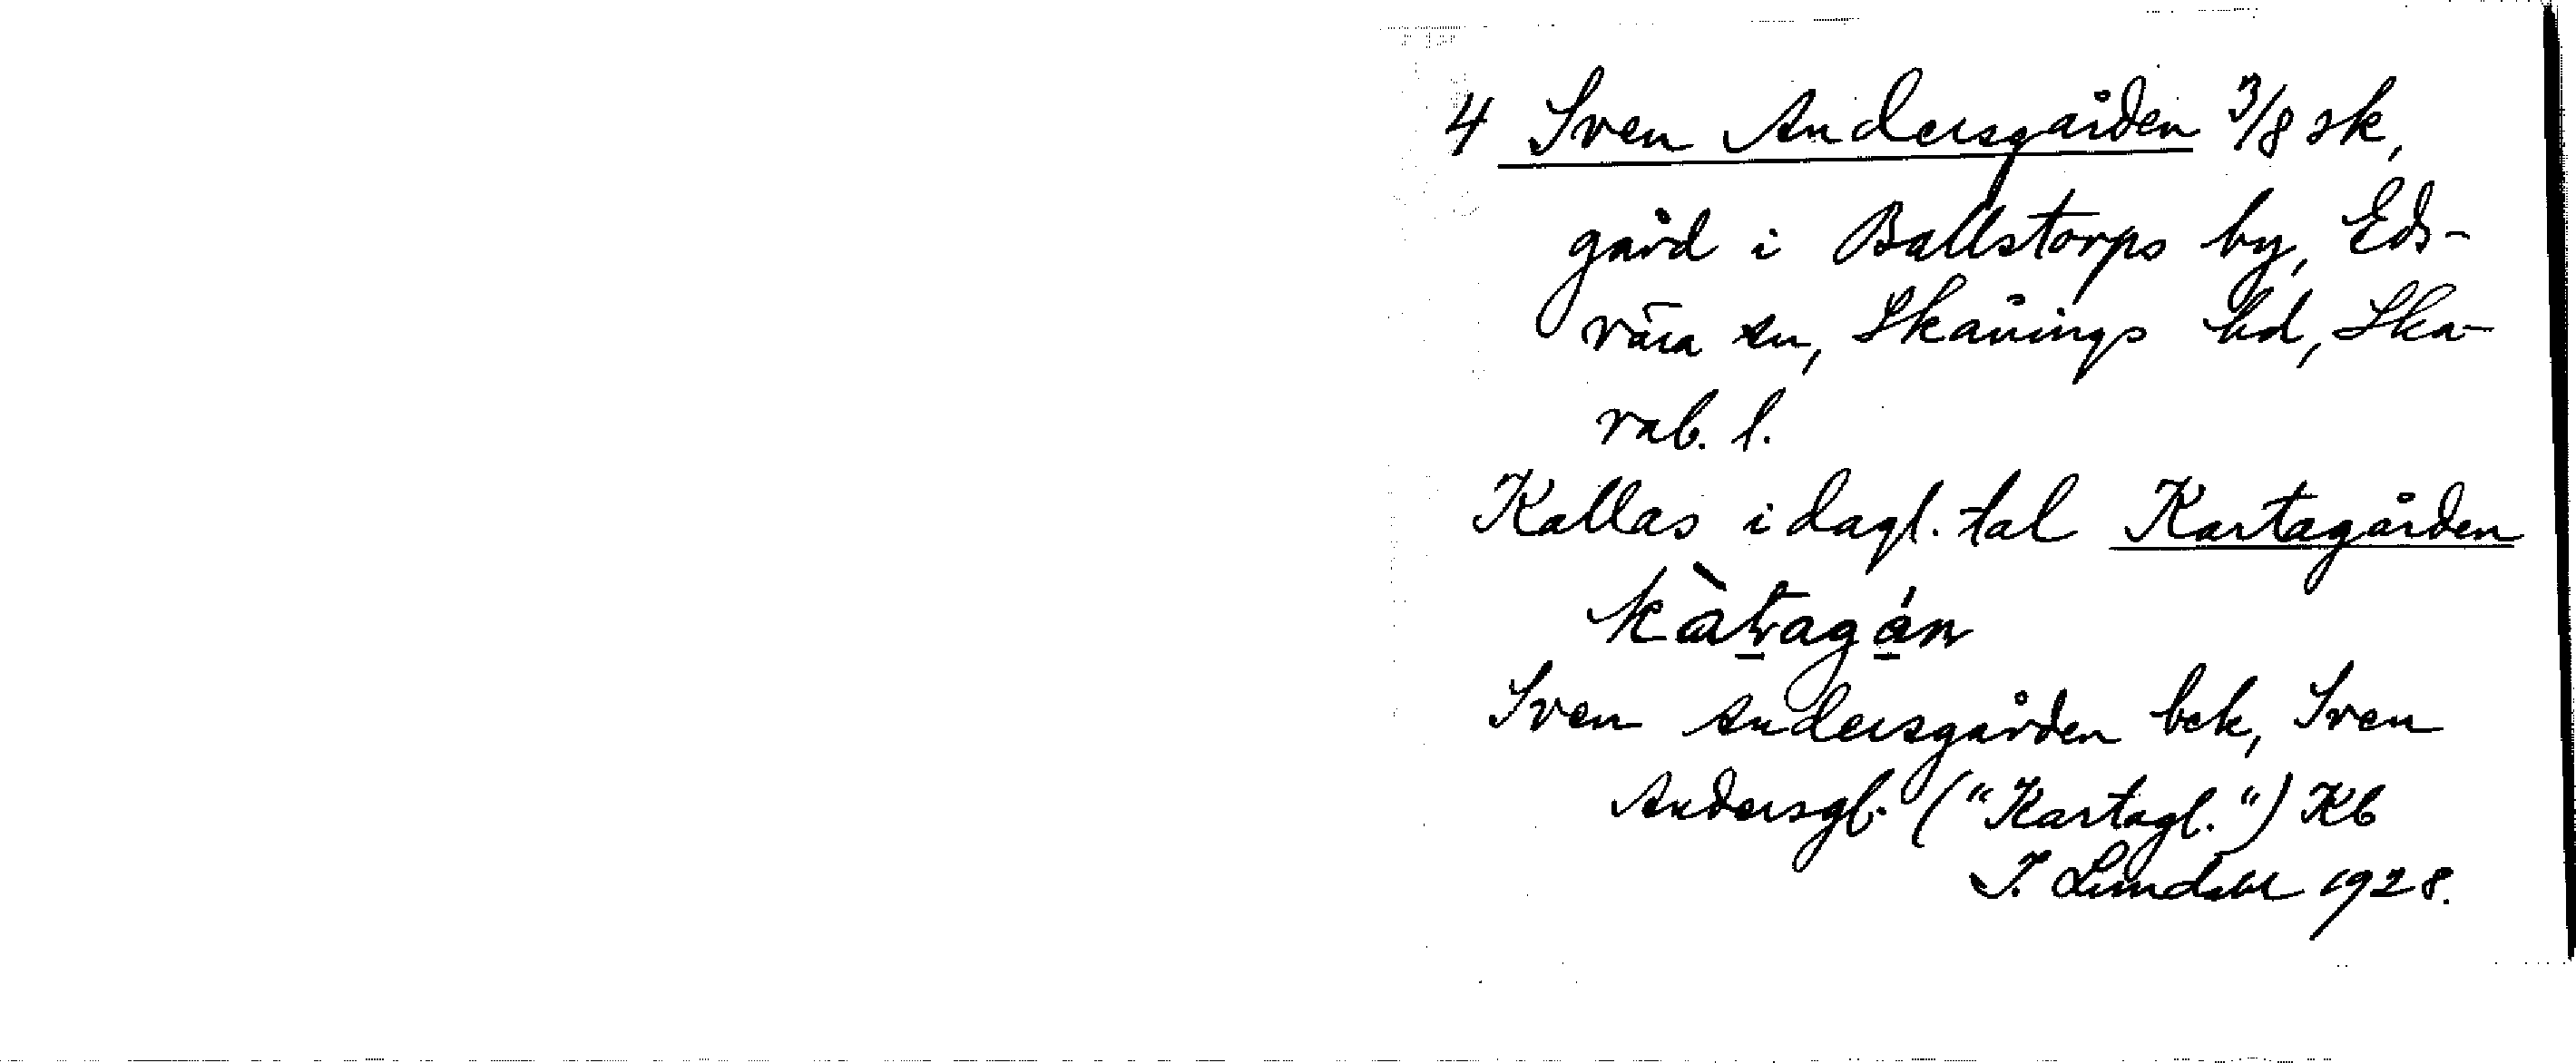 4 Sven Andersgården 3/8 sk,
gård i Ballstorps by, Eds-
vära sn, Skånings hd, Ska-
rab. l.
Kallas i dagl. tal Kartagården
Sven Andersgården bek, Sven
Andersgl. ("Kartagl.") Kb
J. Lundahl 1928.